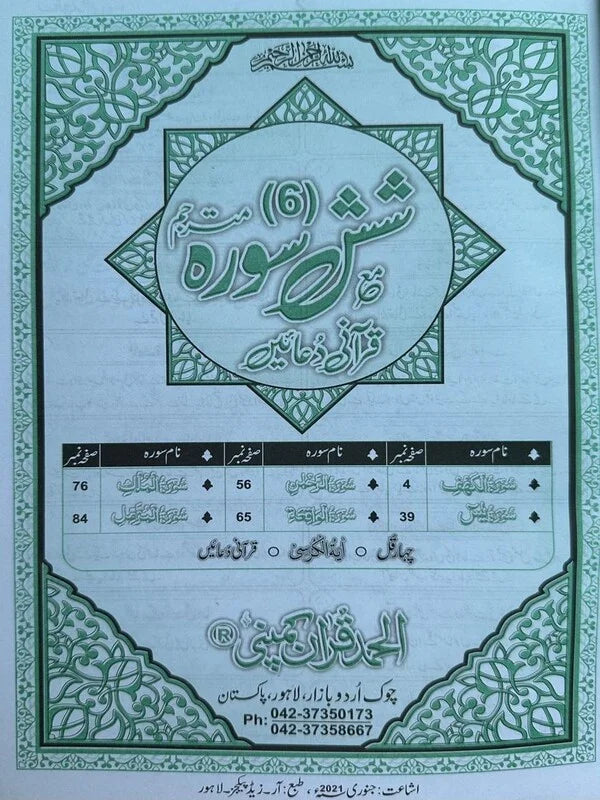 بسم الله الرحمن الرحيم
شش (6) سورہ مترجم
مع
قرآنی دعائیں
نام سورہ صفحہ نمبر نام سورہ صفحہ نمبر نام سورہ صفحہ نمبر
سورة الكهف 4 سورة الرحمن 56 سورة الملك 76
سورة يس 39 سورة الواقعة 65 سورة المزمل 84
چہار قل ○ آية الكرسي ○ قرآنی دعائیں
الحمد قرآن کمپنی ®
چوک اُردو بازار، لاہور، پاکستان
Ph: 042-37350173
042-37358667
اشاعت: جنوری 2021ء، طبع: آر۔زیڈ پیکجز۔لاہور